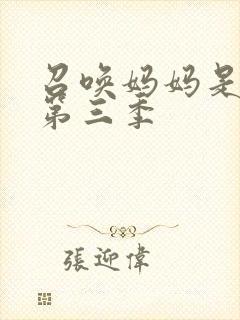 召唤妈妈是
第三季
張迎偉